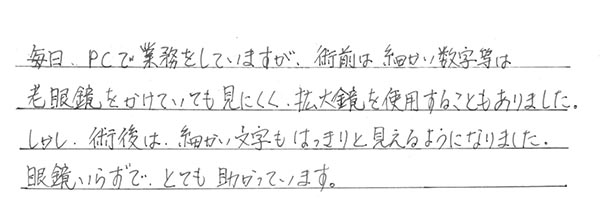 毎日、PCで業務をしていますが、術前は細かい数字等は
老眼鏡をかけていても見にくく、拡大鏡を使用することもありました。
しかし、術後は、細かい文字もはっきりと見えるようになりました。
眼鏡いらずで、とても助かっています。